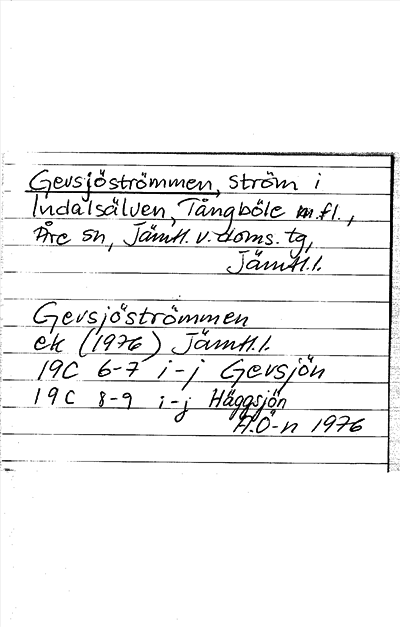 Gevsjöströmmen, ström i
Indalsälven, Tångböle m.fl.,
Åre sn, Jämtl. v. doms. tg,
Jämtl.l.
Gevsjöströmmen
ek (1976) Jämtl.l.
19C 6-7 i-j Gevsjön
19C 8-9 i-j Häggsjön
A.Ö-n 1976